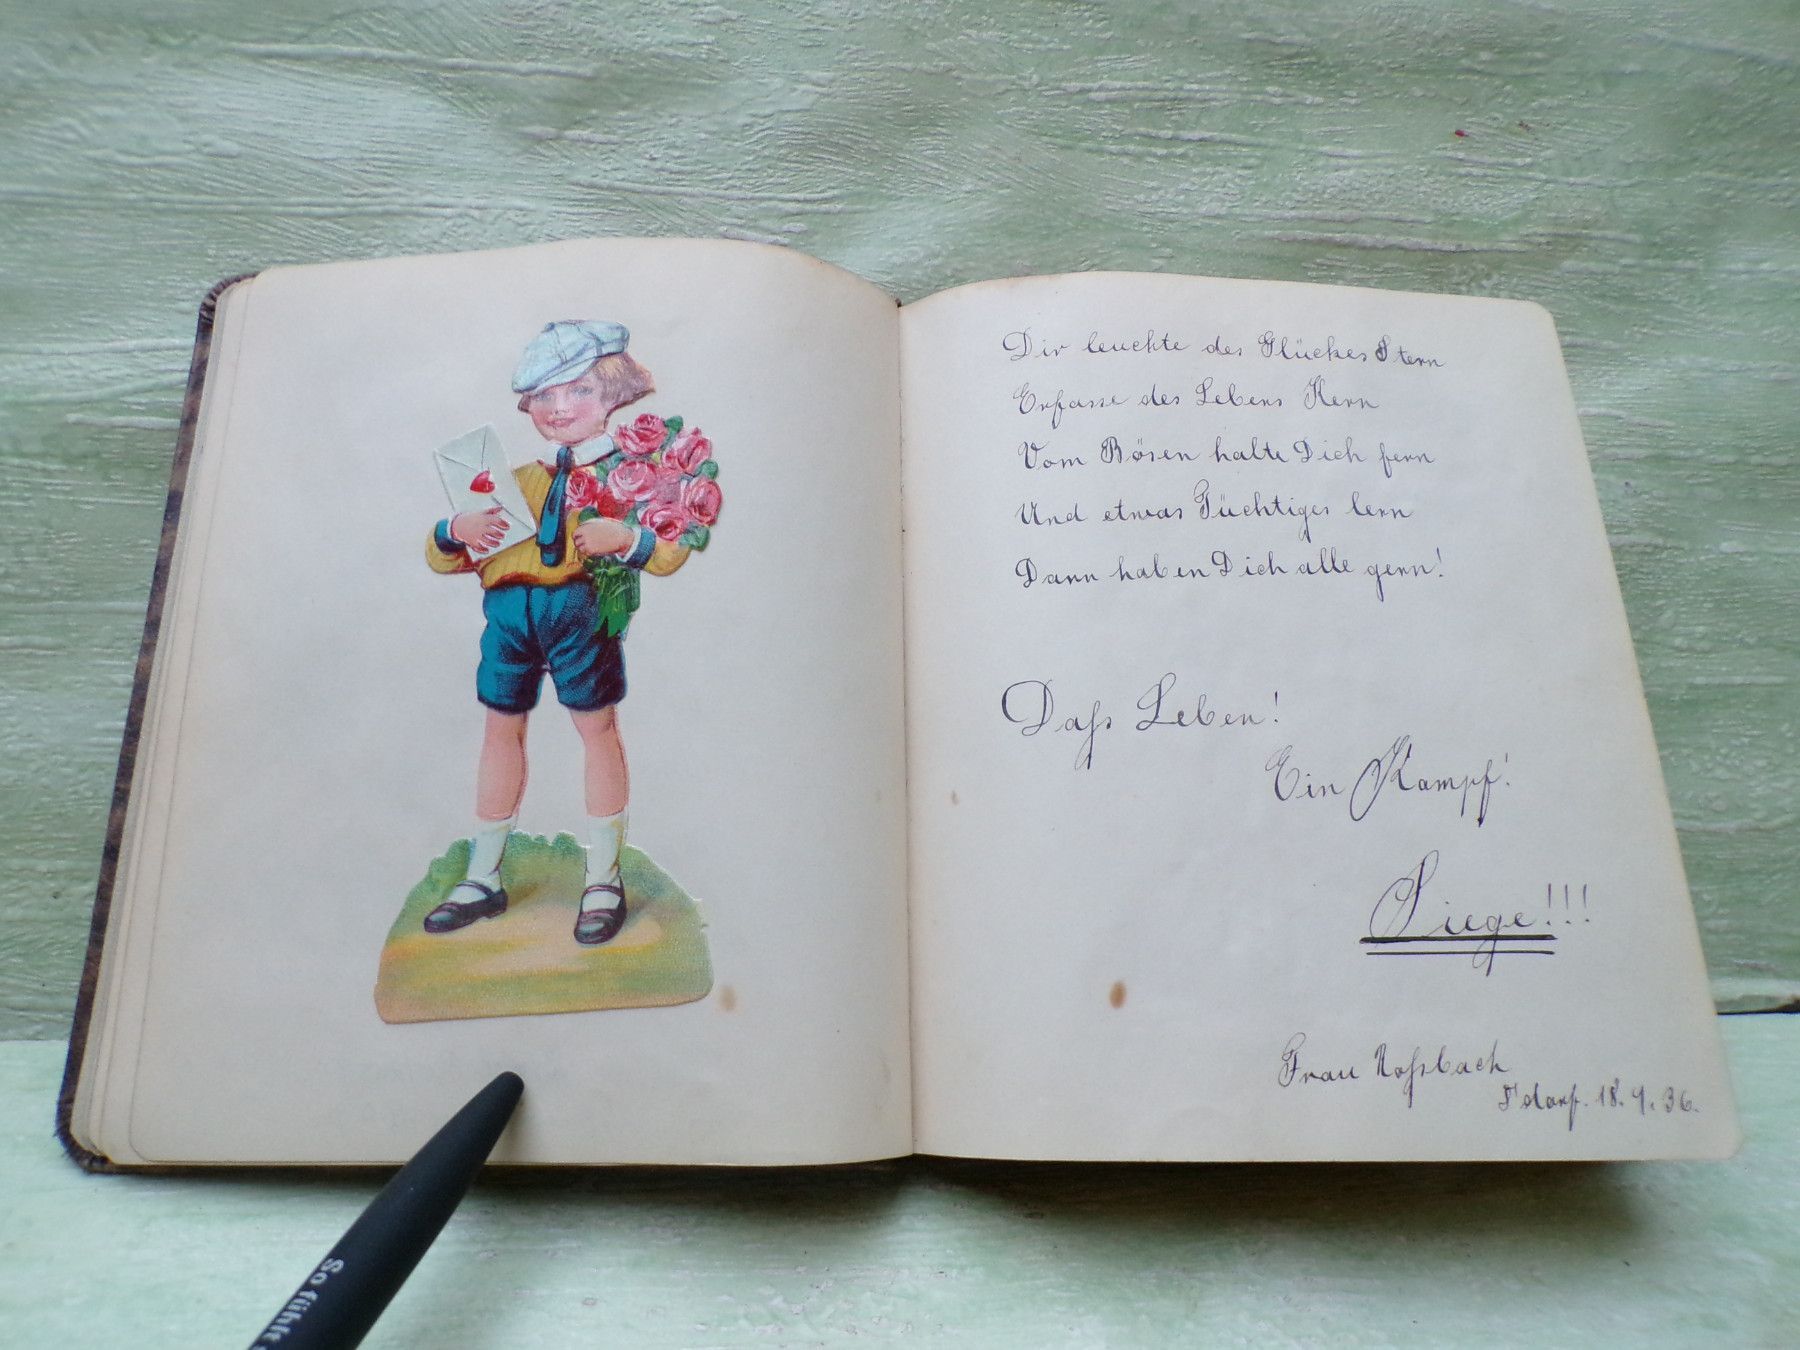 Dir leuchte des Glückes Stern
Erfasse des Lebens Kern
Vom Bösen halte Dich fern
Und etwas Tüchtiges lern
Dann haben Dich alle gern!
Daſs Leben!
Ein Kampf!
Siege!!!
Frau Roſsbach
dorf. 18. 9. 36.
So fühlt